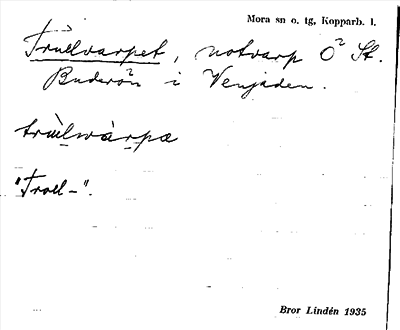 Mora sn o. tg, Kopparb. l.
Truelvarpet, notvarp Ö St.
Buderön i Venjaden.
trùlwàrpæ
"Troll-".
Bror Lindén 1935